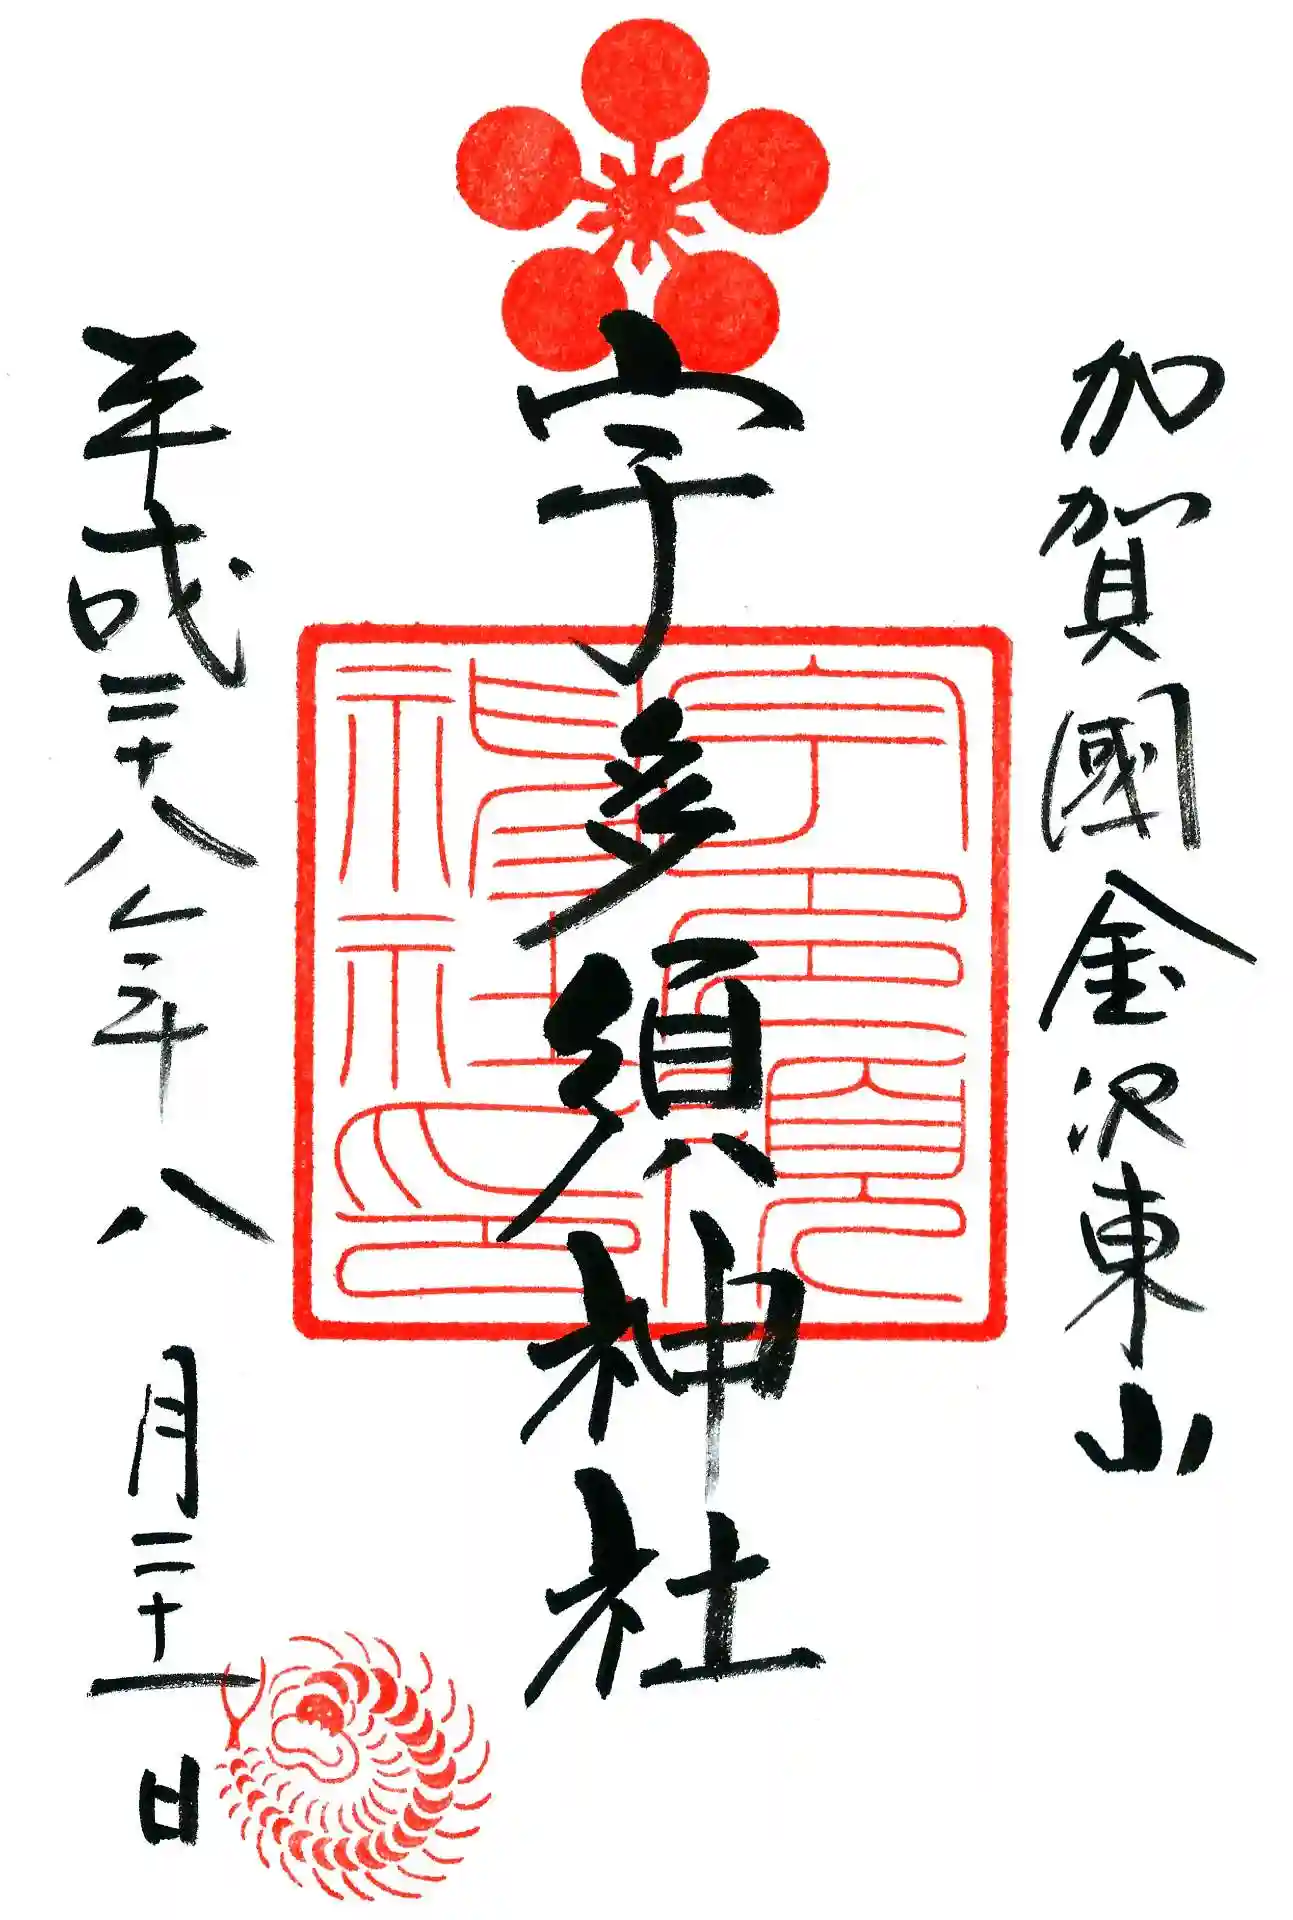 加賀國金沢東山
宇多須神社
宇多須神社印
平成二十八年八月二十一日